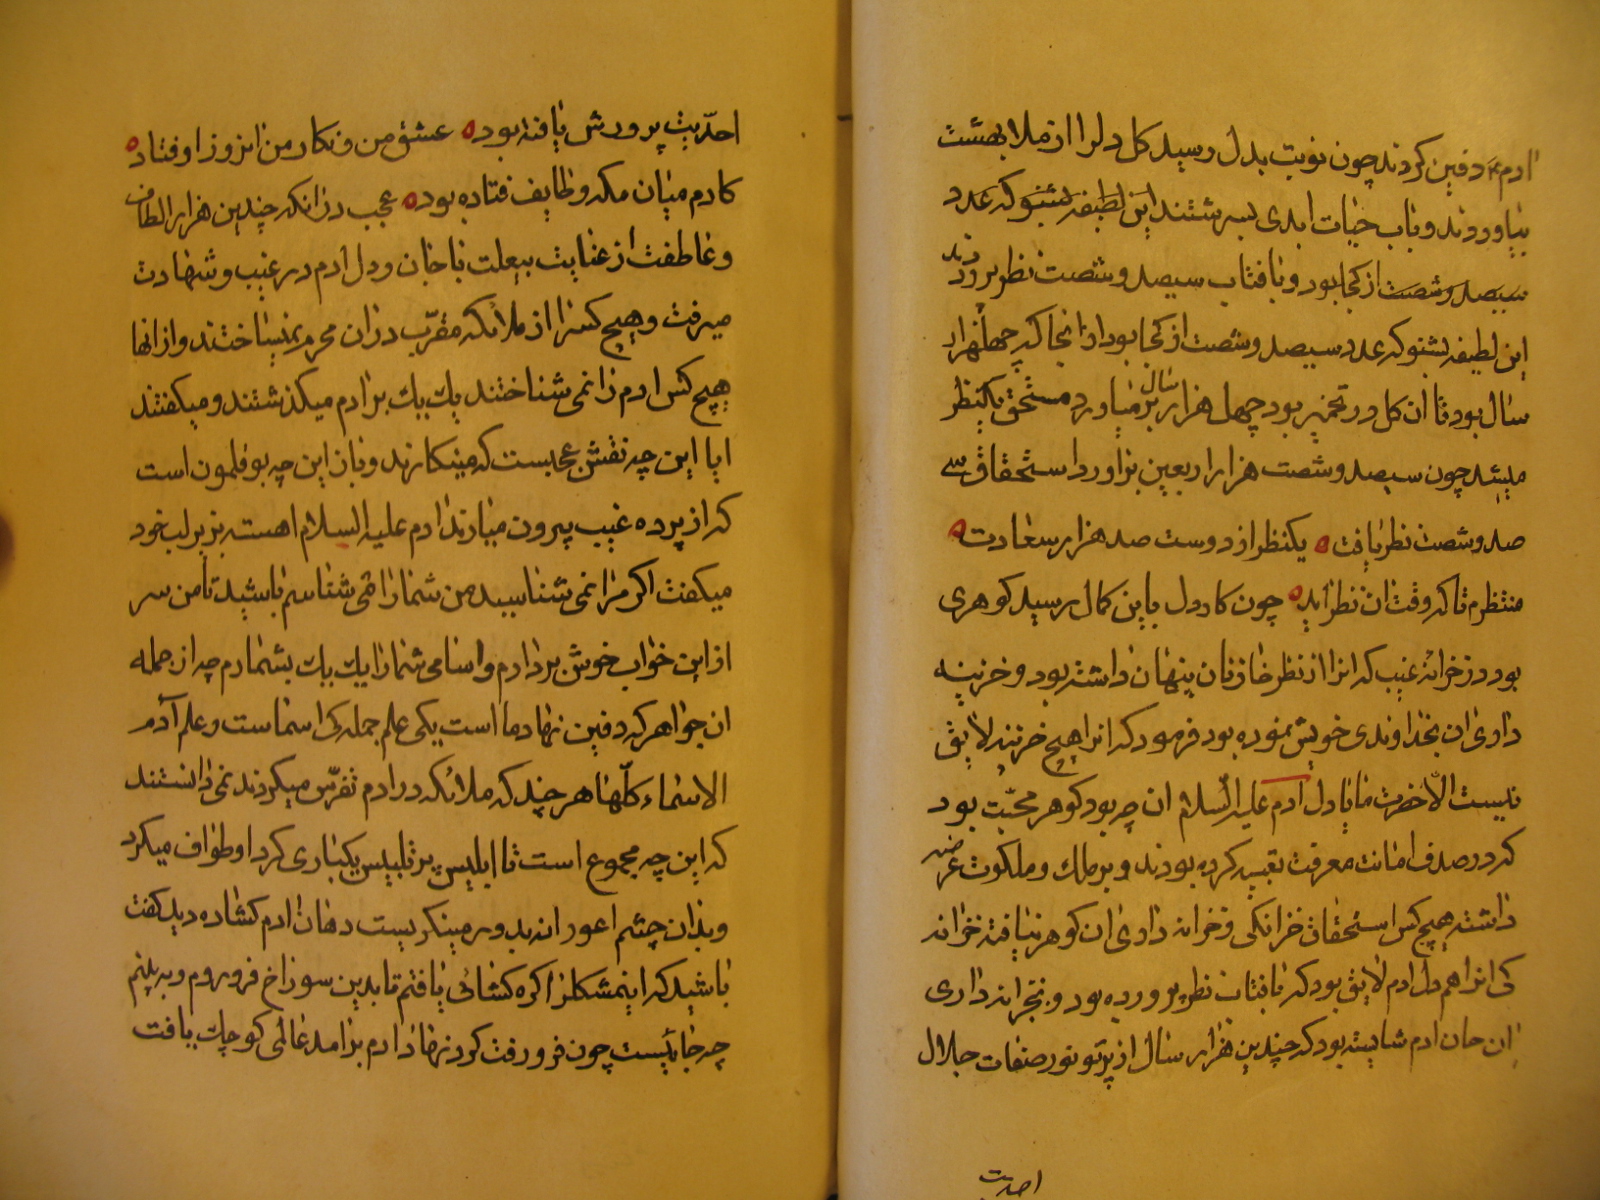 ادم ع دفین کردند چون نوبت بدل رسید کل دلرا از ملا بهشت
بیاوردند و باب حیات ابدی بسرشتند این لطیفه بشنو که عدد
سیصد و شصت از کجا بود و بافتاب سیصد و شصت نظر پروردند
این لطیفه بشنو که عدد سیصد و شصت از کجا بود از انجا که چهلهزار
سال بود تا ان کل در تخمیر بود چهل هزار سال بر میاورد مستحق یکنظر
میشد چون سیصد و شصت هزار اربعین براورد استحقاق سی
صد و شصت نظر یافت ه یکنظر از دوست صد هزار سعادت ه
منتظرم تا که وقت ان نظر اید ه چون کار دل باین کمال رسید کوهری
بود در خزانه غیب که انرا از نظر خازنان پنهان داشته بود و خزینه
داری ان بخداوندی خویش نموده بود فرمود که انرا هیچ خزینه لایق
نیست الا حضرت ما یا دل آدم علیه السلام ان چه بود کوهر محبت بود
که در صدف امانت معرفت تعبیه کرده بودند و بر ملك و ملکوت عرضه
داشته هیچ کس استحقاق خزانکی و خزانه داری ان کوهر نیافته خزانه
کی انرا هم دل ادم لایق بود که بافتاب نظر پرورده بود و بخزانه داری
ان جان ادم شایسته بود که چندین هزار سال از پرتو نور صفات جلال
احدیت
احدیت پرورش یافته بود ه عشق من و نکار من انروز اوفتاد ه
کادم میان مکه و طایف فتاده بود ه عجب در انکه چندین هزار الطاف
و عاطفت از عنایت بیعلت با جان و دل ادم در غیب و شهادت
میرفت و هیچ کسرا از ملائکه مقرب دران محرم نمیساختند و از انها
هیچ کس ادم را نمی شناختند یك یك بر ادم میکذشتند و میکفتند
ایا این چه نقش عجبست که مینکارند و بان این چه بوقلمون است
که از پرده غیب بیرون میارند ادم علیه السلام اهسته بزیر لب خود
میکفت اکر مرا نمی شناسید من شما را می شناسم باشید تا من سر
از این خواب خوش بردارم و اسامی شما را یك یك بشمارم چه از جمله
ان جواهر که دفین نهاد ما است یکی علم جمله کی اسماست و علم آدم
الاسماء کلها هر چند که ملائکه در ادم تفرس میکردند نمی دانستند
که این چه مجموع است تا ابلیس پر تلبیس یکباری کرد او طواف میکرد
و بدان چشم اعورانه بدو در مینکریست دهان ادم کشاده دید کفت
باشید که اینمشکلرا کره کشائی یافتم تا بدین سوراخ فرو روم و به بینم
چه جائیست چون فرو رفت کرد نهاد ادم برامد عالمی کوچك یافت